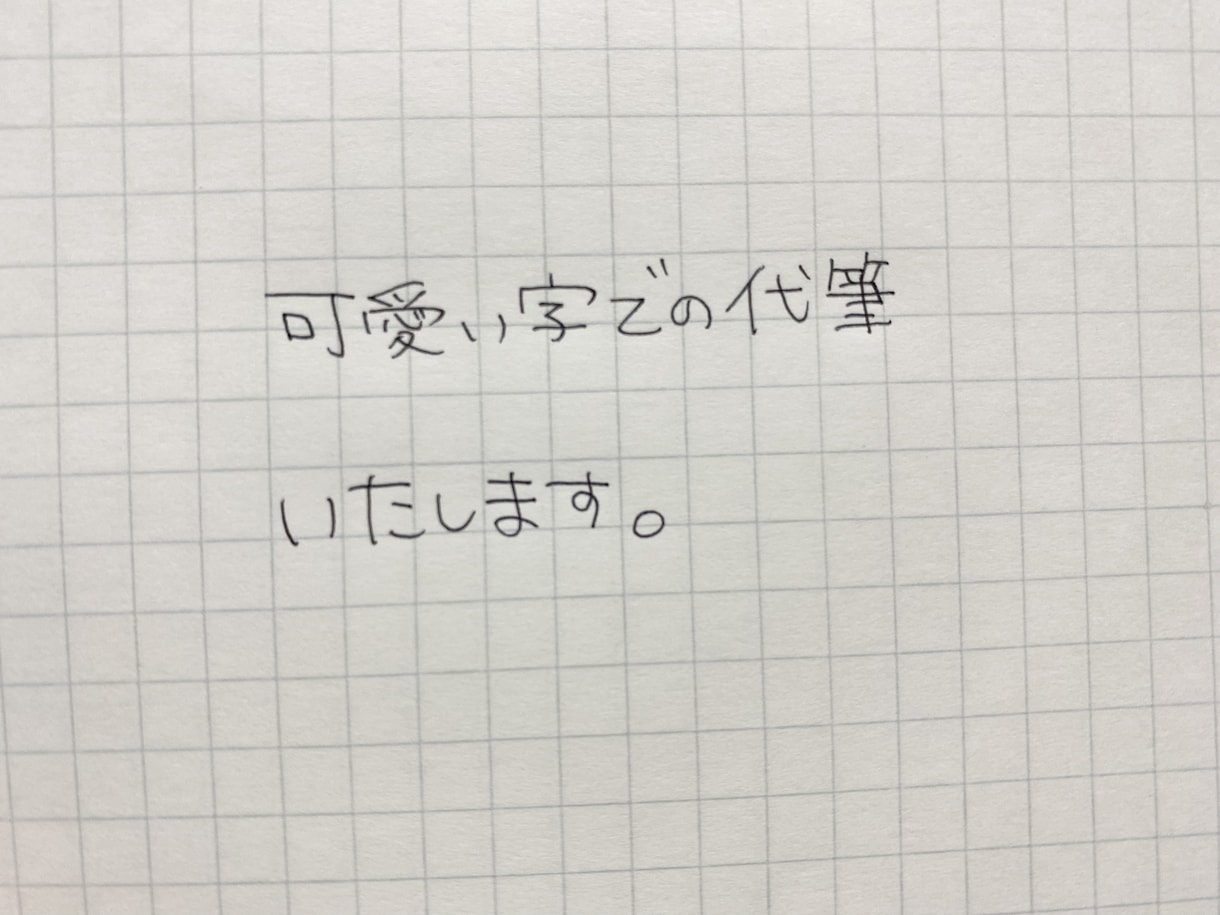 可愛い字での代筆
いたします。